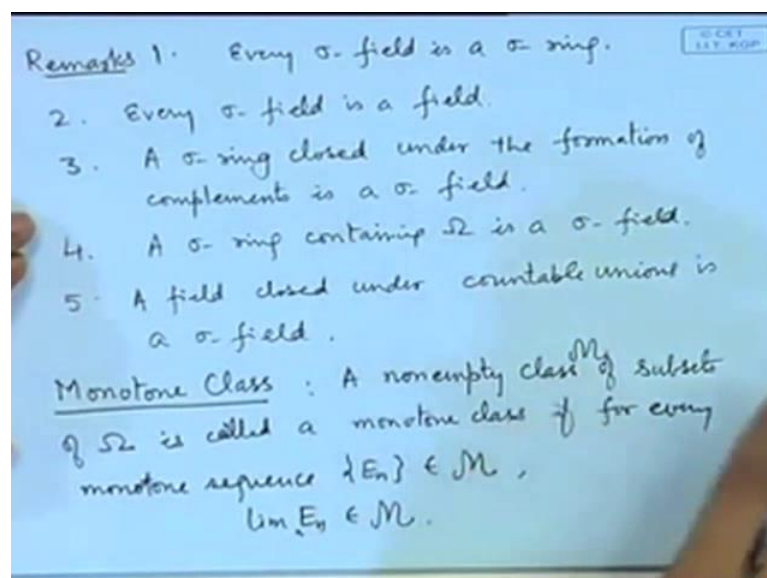 © CET
I.I.T. KGP
Remarks 1. Every σ- field is a σ- ring.
2. Every σ- field is a field.
3. A σ- ring closed under the formation of
complements is a σ- field.
4. A σ- ring containing Ω is a σ- field.
5. A field closed under countable unions is
a σ- field.
Monotone Class : A nonempty class ℳ of subsets
of Ω is called a monotone class if for every
monotone sequence {En} ∈ ℳ,
lim En ∈ ℳ.